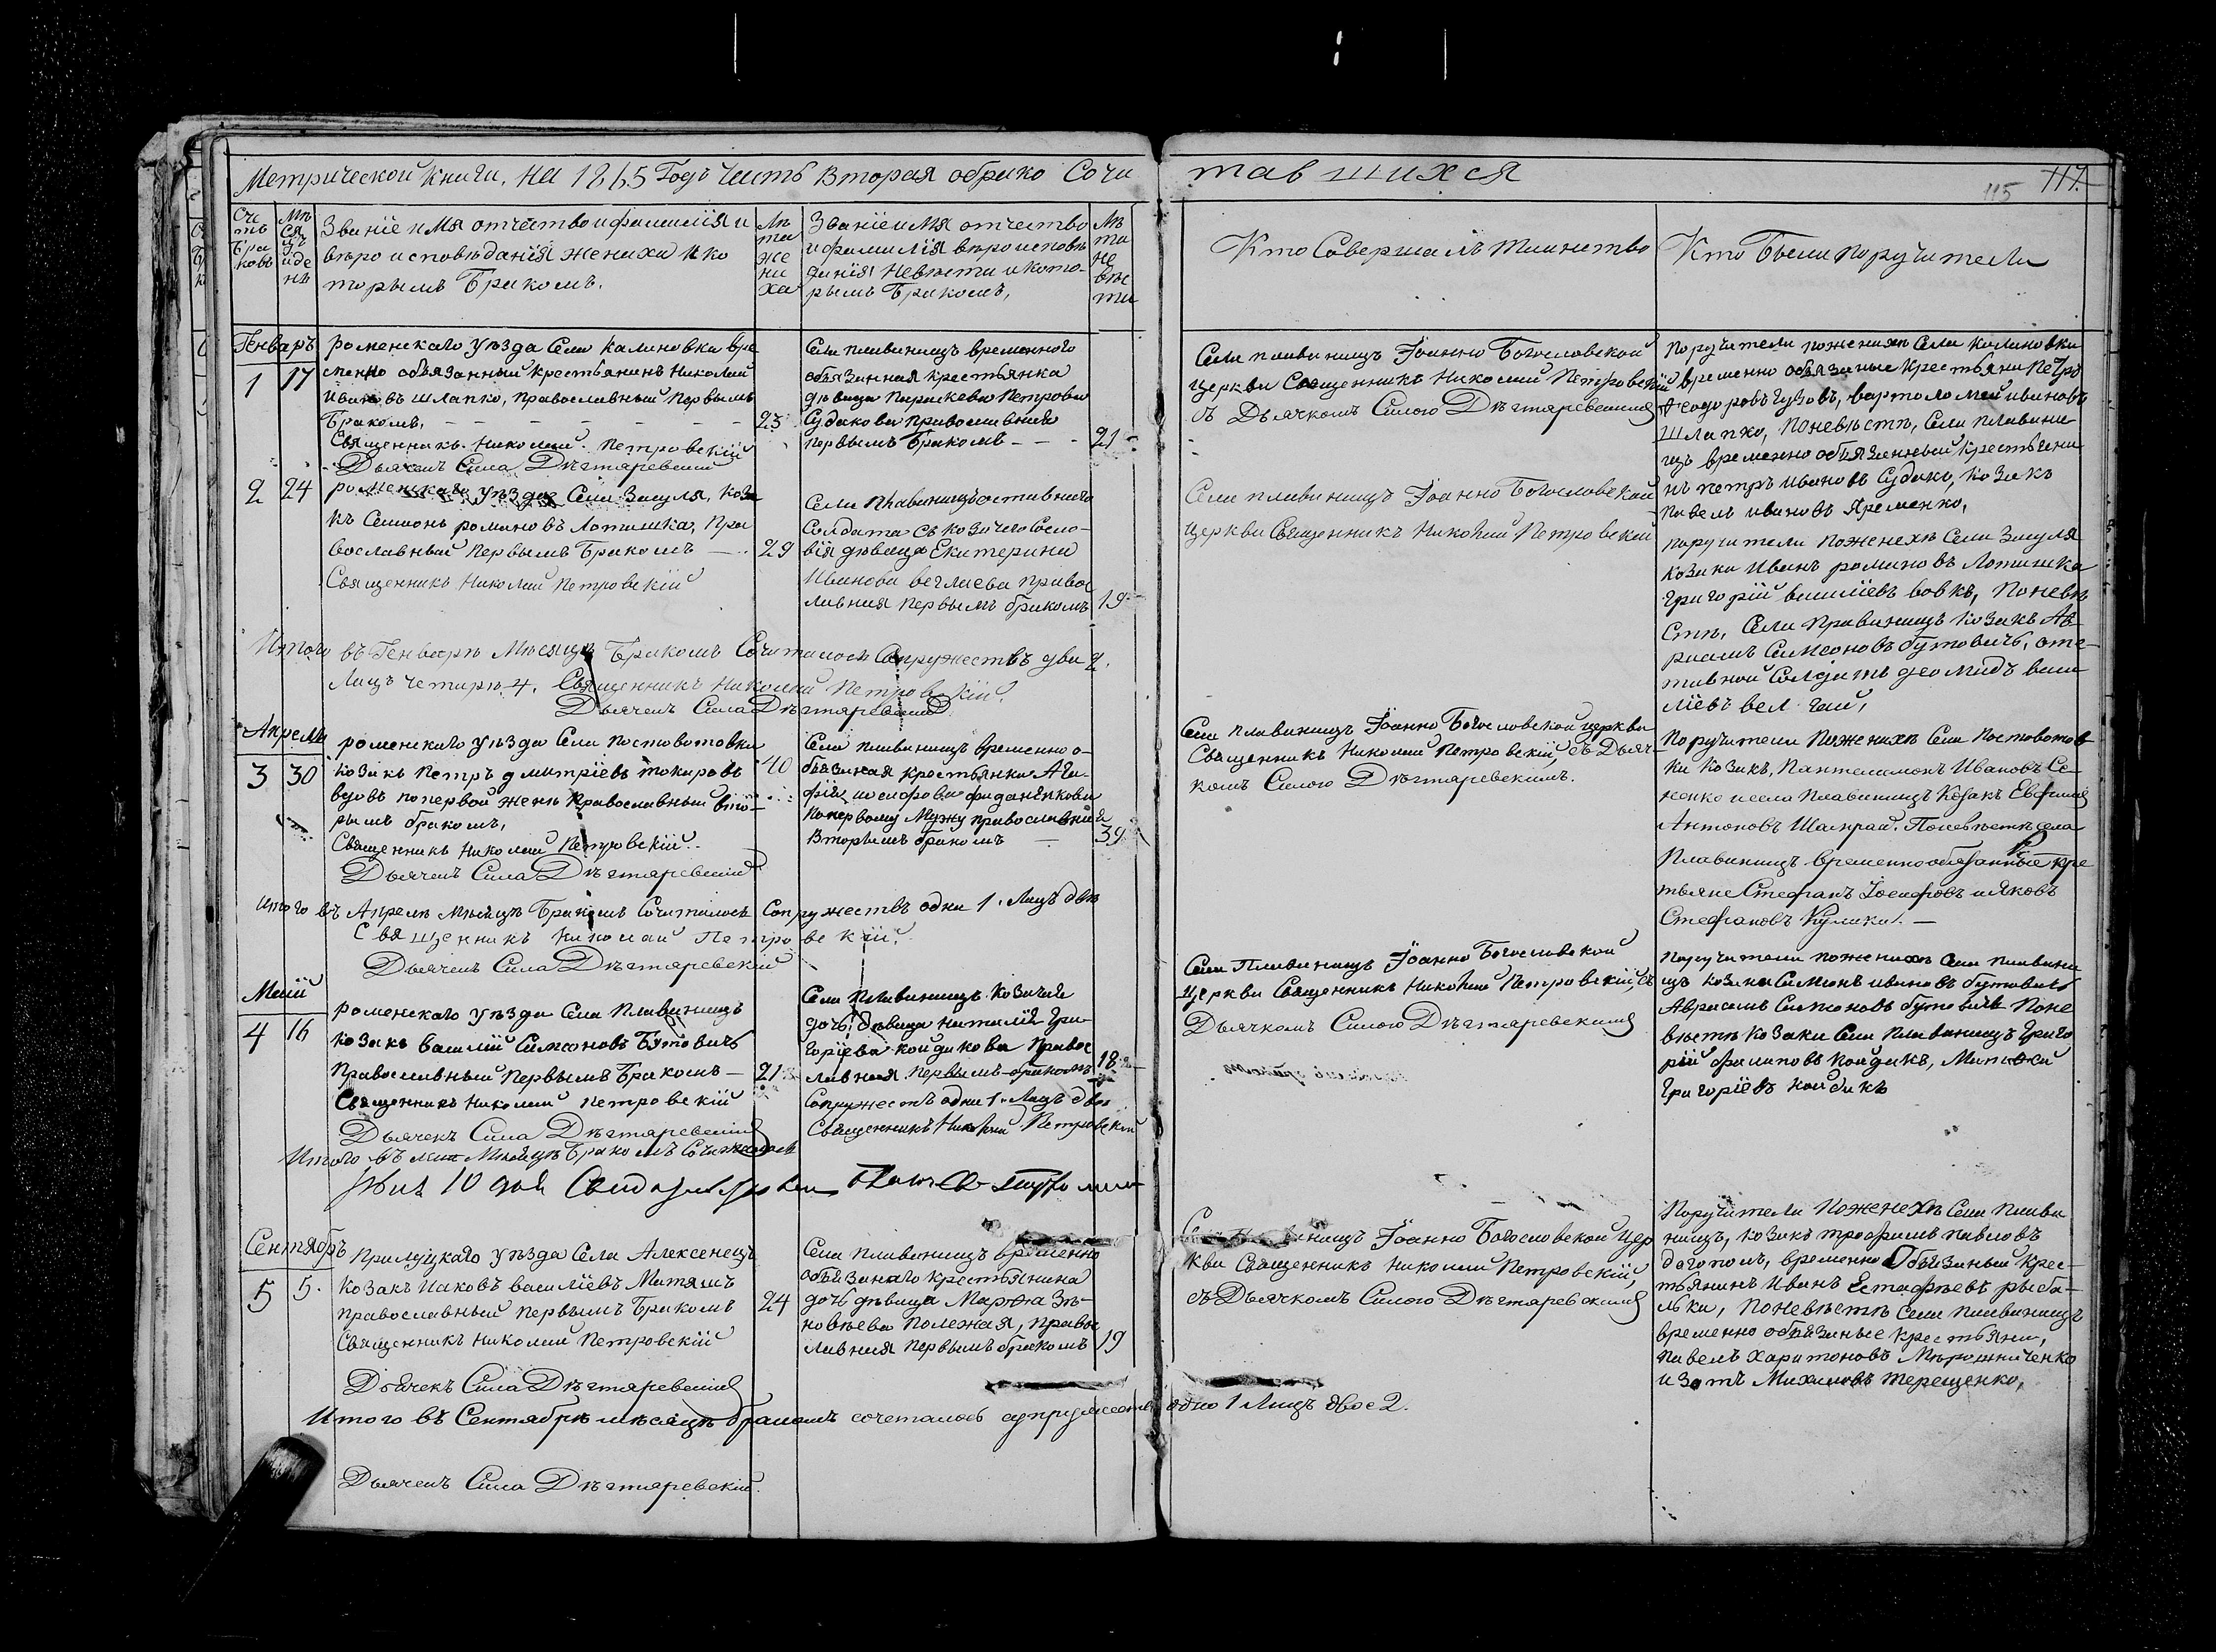 Метрической книги, на 1865 Годъ Часть Вторая обрако Сочи
тавшихся
115 117.
Сче
тъ
Бра
ковъ
Мѣ
ся
цъ
иде
нь
Званіе имя отчество и фамилія и
вѣро исповѣданія жениха и ко
торымъ Бракомъ.
Лѣ
та
же
ни
ха
Званіе имя отчество
и фамилія вѣро исповѣ
данія Невѣсти и кото-
рымъ Бракомъ,
Лѣ
та
не
вѣс
ти
Кто Совершалъ таинство
Кто Были поручители
Генваръ
1 17
роменскаго уѣзда Села калиновки вре
менно объязанный крестьянинъ Николай
ивановъ шлапко, православный Первымъ
Бракомъ, 23
Священникъ Николай Петровскій
Дьячекъ Сила Дѣгтяревскій
Села плавинищъ временного
объязанная крестьянка
дѣвица Параскева Петрова
Судакова православная
первымъ Бракомъ 21
Села плавинищъ Іоанно Богословской
церкви Священникъ Николай Петровскій
съ Дьячкомъ Силою Дѣгтяревскимъ
Поручители поженихѣ Села Калиновки
временно обязаные крестьяни Петро
Феодоровъ Гузовъ, вартоломей ивановъ
шлапко, Поневѣстѣ, Села плавини
щъ временно объязанный крестьяни
нъ петръ ивановъ Судако, козакъ
павелъ ивановъ Яременко,
2 24
роменскаго уѣзда Села Засуля, коза
къ Симіонъ романовъ Лотишка, Пра
вославный Первымъ Бракомъ 29
Священникъ Николай Петровскій
Села плавинищъ оставнаго
Солдата съ козачего Сосло-
вія дѣвица Екатерина
Иванова веглаева православ
лавная первымъ бракомъ 19
Села плавинищъ Іоанно Богословской
церкви Священникъ Николай Петровскій
поручители Поженехѣ Села Засуля
козаки Иванъ романовъ Лотишка
григорій василіевъ вовкъ, Поневѣ
стѣ, Села плавинищъ козакъ Ав-
раамъ Симеоновъ бутовичъ, отс-
тавной Солдатъ деомидъ васи
ліевъ веглай,
Итого въ Генварѣ Мѣсяцѣ Бракомъ Сочиталось Сопружествъ два 2.
Лицъ четирѣ 4. Священникъ Николай Петровскій.
Дьячекъ Сила Дѣгтяревскій
Апреля
3 30
роменскаго уѣзда Села Постовотовки
козакъ Петръ дмитріевъ токаровъ 40
вдовъ попервой женѣ православный вто-
рымъ бракомъ,
Священникъ Николай Петровскій
Дьячекъ Сила Дѣгтяревскій
Села плавинищъ временно о-
бъязаная крестьянка Ага-
фія иосифова
Попервому Мужу православная
Вторымъ бракомъ 39
Села плавинищъ Іоанно Богословской церкви
Священникъ Николай Петровскій, съ Дьяч-
комъ Силою Дѣгтяревскимъ.
Поручители Поженихѣ Села Постовотов
ки козакъ, Пантелимонъ Ивановъ Се-
ненко исела Плавинищъ Козакъ Евфимій
Антоновъ Шамрай. Поневѣстѣ села
Плавинищъ временнообязанные кре
тьяне Стефанъ Іосифовъ иЯковъ
Стефановъ Кулики.
Итого въ Апрелѣ Мѣсяцѣ Бракомъ Сочиталось Сопружествъ одна 1. Лицъ двѣ
Священникъ Николай Петровскій,
Дьячекъ Сила Дѣгтяревскій
Маій
4 16
роменскаго уѣзда Села Плавинищъ
козакъ василій Симеоновъ Бутовичъ
Православный Первымъ Бракомъ 21
Священникъ Николай Петровскій
Дьячекъ Сила Дѣгтяревскій
Села плавинищъ козачая
дочь, дѣвица наталія гри-
горіева койдакова православ
лавная первымъ бракомъ 18
Сопружествъ одна 1. Лицъ два
Священникъ Николай Петровскій
Итого въ маѣ Мѣсяцѣ Бракомъ Сочиталось
Села Плавинищъ Іоанно Богословской
Церкви Священникъ Николай Петровскій, съ
Дьячкомъ Силою Дѣгтяревскимъ
Поручители поженихѣ Села плавини
щъ козаки Симіонъ ивановъ бутовичъ
Авраамъ Симеоновъ бутовичъ Поне
вѣстѣ козаки Села плавинищъ Григо
рій филиповъ койдакъ, Матфей
Григоріевъ койдакъ
Сентябръ
5 5.
Прилуцкаго уѣзда Села Алексенецъ
козакъ иаковъ василіевъ Митяшъ
православный первымъ Бракомъ 24
Священникъ Николай Петровскій
Дьячекъ Сила Дѣгтяревскій
Села плавинищъ временно
объязанаго крестьянина
дочь дѣвица Марѳа Зѣ-
новѣева полежая, православ
лавная первымъ бракомъ 19
Іоанно Богословской Цер
кви Священникъ Николай Петровскій,
съ Дьячкомъ Силою Дѣгтяревскимъ
Поручители Поженехѣ Села плави
нищъ, козакъ трофимъ павловъ
временно Объязаный крес-
тьянинъ Иванъ Естафѣевъ рыба-
лька, Поневѣстѣ Села плавинищъ
временно объязаные крестьяни,
павелъ харитоновъ Мѣрошниченко
Михаиловъ терещенко,
Итого въ Сентябрѣ мѣсяцѣ бракомъ сочеталось супружествъ одно 1 Лицъ двое 2.
Дьячекъ Сила Дѣгтяревскій.